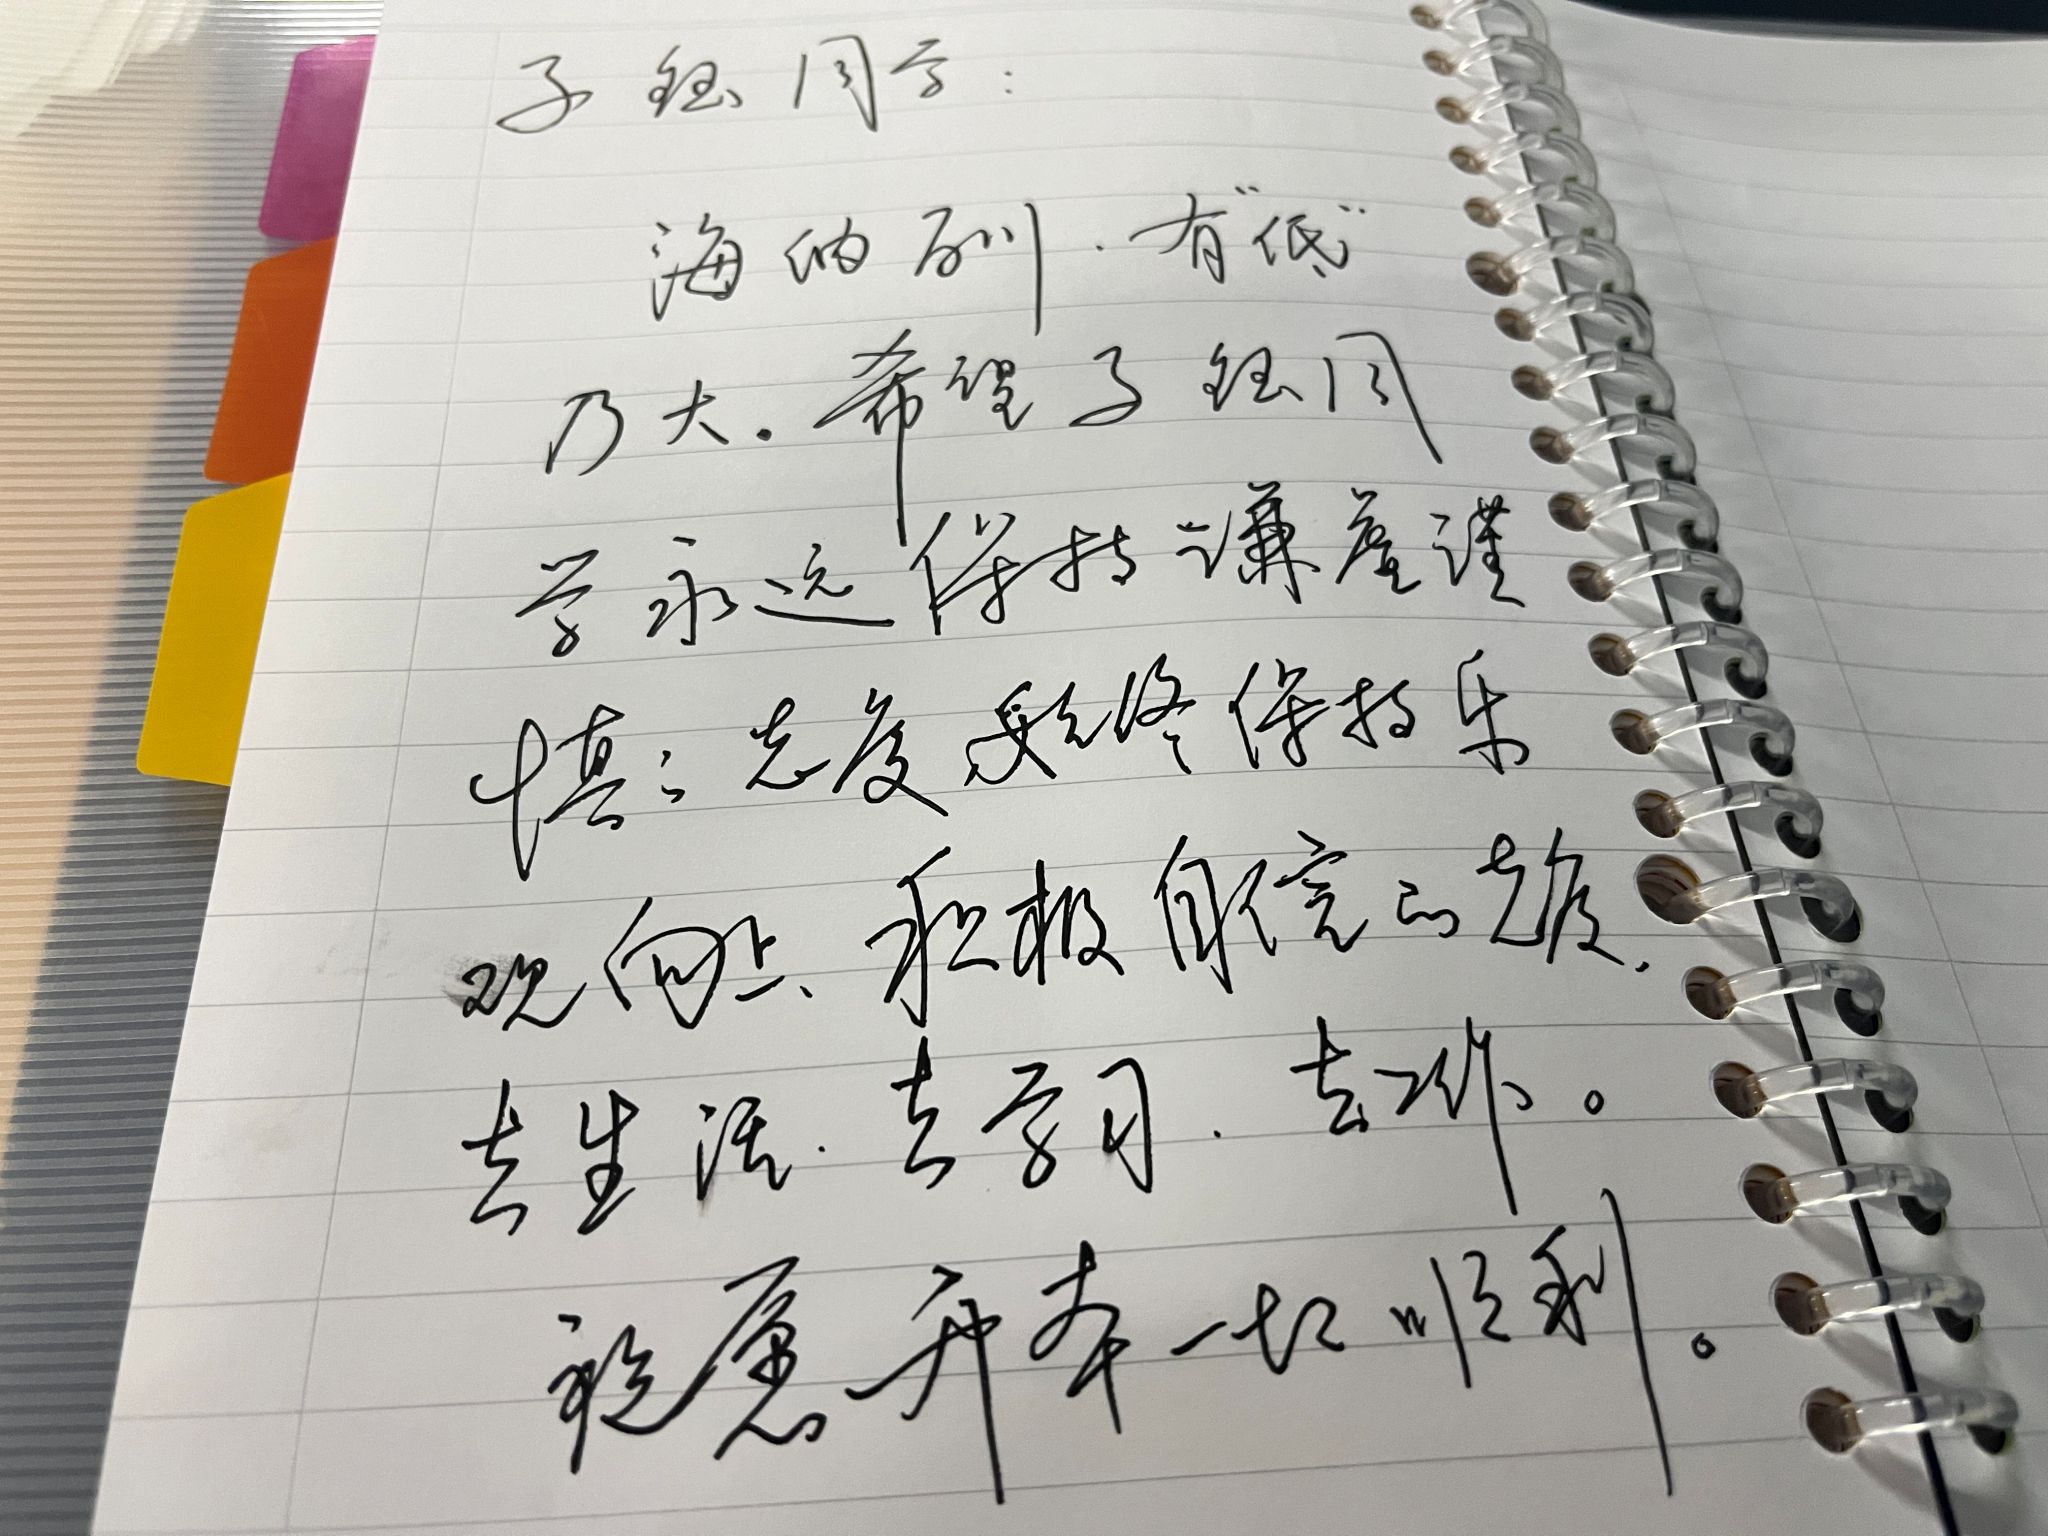 子钰同学：
海纳百川，有“低”
乃大。希望子钰同
学永远保持谦虚谨
慎之态度，始终保持乐
观向上、积极自信的态度，
去生活，去学习，去工作。
祝愿升本一切顺利。